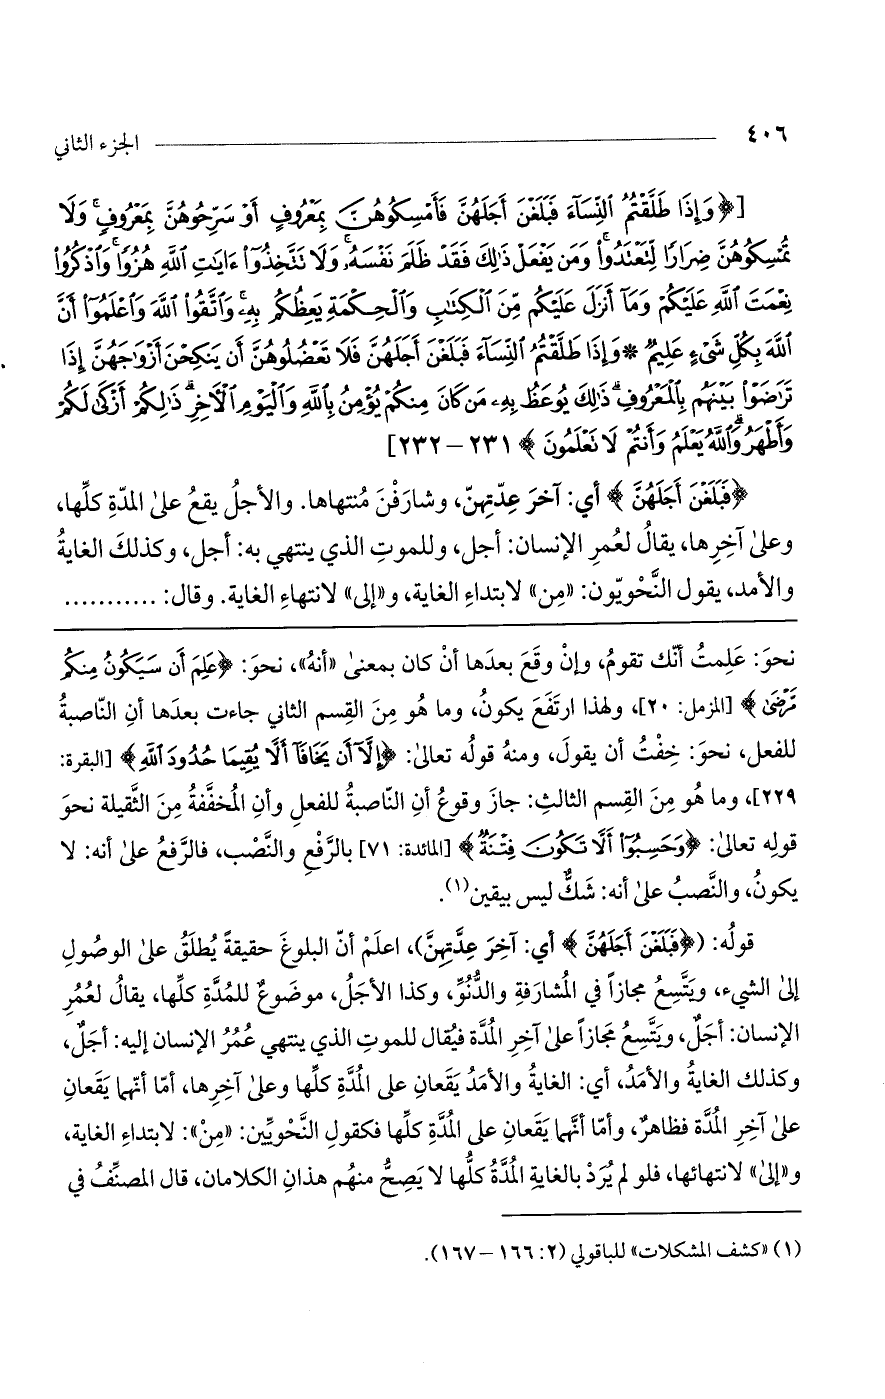 ٤٠٦ الجزء الثاني
[﴿وَإِذَا طَلَّقْتُمُ ٱلنِّسَآءَ فَبَلَغْنَ أَجَلَهُنَّ فَأَمْسِكُوهُنَّ بِمَعْرُوفٍ أَوْ سَرِّحُوهُنَّ بِمَعْرُوفٍ ۚ وَلَا
تُمْسِكُوهُنَّ ضِرَارًا لِّتَعْتَدُوا۟ ۚ وَمَن يَفْعَلْ ذَٰلِكَ فَقَدْ ظَلَمَ نَفْسَهُۥ ۚ وَلَا تَتَّخِذُوٓا۟ ءَايَٰتِ ٱللَّهِ هُزُوًا ۚ وَٱذْكُرُوا۟
نِعْمَتَ ٱللَّهِ عَلَيْكُمْ وَمَآ أَنزَلَ عَلَيْكُم مِّنَ ٱلْكِتَٰبِ وَٱلْحِكْمَةِ يَعِظُكُم بِهِۦ ۚ وَٱتَّقُوا۟ ٱللَّهَ وَٱعْلَمُوٓا۟ أَنَّ
ٱللَّهَ بِكُلِّ شَىْءٍ عَلِيمٌ * وَإِذَا طَلَّقْتُمُ ٱلنِّسَآءَ فَبَلَغْنَ أَجَلَهُنَّ فَلَا تَعْضُلُوهُنَّ أَن يَنكِحْنَ أَزْوَٰجَهُنَّ إِذَا
تَرَٰضَوْا۟ بَيْنَهُم بِٱلْمَعْرُوفِ ۗ ذَٰلِكَ يُوعَظُ بِهِۦ مَن كَانَ مِنكُمْ يُؤْمِنُ بِٱللَّهِ وَٱلْيَوْمِ ٱلْأَخِرِ ۗ ذَٰلِكُمْ أَزْكَىٰ لَكُمْ
وَأَطْهَرُ ۗ وَٱللَّهُ يَعْلَمُ وَأَنتُمْ لَا تَعْلَمُونَ﴾ ٢٣١ – ٢٣٢]
﴿فَبَلَغْنَ أَجَلَهُنَّ﴾ أي: آخرَ عِدّتِهنّ، وشارَفْنَ مُنتهاها. والأجلُ يقعُ علىٰ المدّةِ كلِّها،
وعلىٰ آخِرِها، يقالُ لعُمرِ الإنسان: أجل، وللموتِ الذي ينتهي به: أجل، وكذلكَ الغايةُ
والأمد، يقول النَّحْويّون: «مِن» لابتداءِ الغاية، و«إلى» لانتهاءِ الغاية. وقال: ...........
نحوَ: عَلِمتُ أنّك تقومُ، وإنْ وقَعَ بعدَها أنْ كان بمعنىٰ «أنهُ»، نحوَ: ﴿عَلِمَ أَن سَيَكُونُ مِنكُم
مَّرْضَىٰ﴾ [المزمل: ٢٠]، ولهذا ارتَفَعَ يكونُ، وما هُو مِنَ القِسم الثاني جاءت بعدَها أنِ النّاصبةُ
للفعل، نحوَ: خِفْتُ أن يقولَ، ومنهُ قولُه تعالىٰ: ﴿إِلَّآ أَن يَخَافَآ أَلَّا يُقِيمَا حُدُودَ ٱللَّهِ﴾ [البقرة:
٢٢٩]، وما هُو مِنَ القِسم الثالثِ: جازَ وقوعُ أنِ النّاصبةُ للفعلِ وأنِ المُخفَّفةُ مِنَ الثَّقيلة نحوَ
قولِه تعالىٰ: ﴿وَحَسِبُوٓا۟ أَلَّا تَكُونَ فِتْنَةٌ﴾ [المائدة: ٧١] بالرَّفْع والنَّصْب، فالرَّفعُ علىٰ أنه: لا
يكونُ، والنَّصبُ علىٰ أنه: شَكٌّ ليس بيقين(١).
قولُه: (﴿فَبَلَغْنَ أَجَلَهُنَّ﴾ أي: آخِرَ عِدَّتِهِنَّ)، اعلَمْ أنّ البلوغَ حقيقةً يُطلَقُ علىٰ الوصُولِ
إلىٰ الشيء، ويَتَّسِعُ مجازاً في المُشارَفةِ والدُّنُوِّ، وكذا الأجَلُ، موضوعٌ للمُدَّةِ كلِّها، يقالُ لعُمُرِ
الإنسان: أجَلٌ، ويَتَّسِعُ مجَازاً علىٰ آخِرِ المُدَّة فيُقال للموتِ الذي ينتهي عُمُرُ الإنسان إليه: أجَلٌ،
وكذلك الغايةُ والأمَدُ، أي: الغايةُ والأمَدُ يَقَعانِ على المُدَّةِ كلِّها وعلىٰ آخِرِها، أمّا أنّهما يَقَعانِ
علىٰ آخِرِ المُدَّة فظاهرٌ، وأمّا أنَّهما يَقَعانِ على المُدَّةِ كلِّها فكقولِ النَّحْويِّين: «مِنْ»: لابتداءِ الغاية،
و«إلىٰ» لانتهائها، فلو لم يُرَدْ بالغايةِ المُدَّةُ كلُّها لا يَصِحُّ منهُم هذانِ الكلامان، قال المصنِّفُ في
(١) «كشف المشكلات» للباقولي (٢: ١٦٦ – ١٦٧).